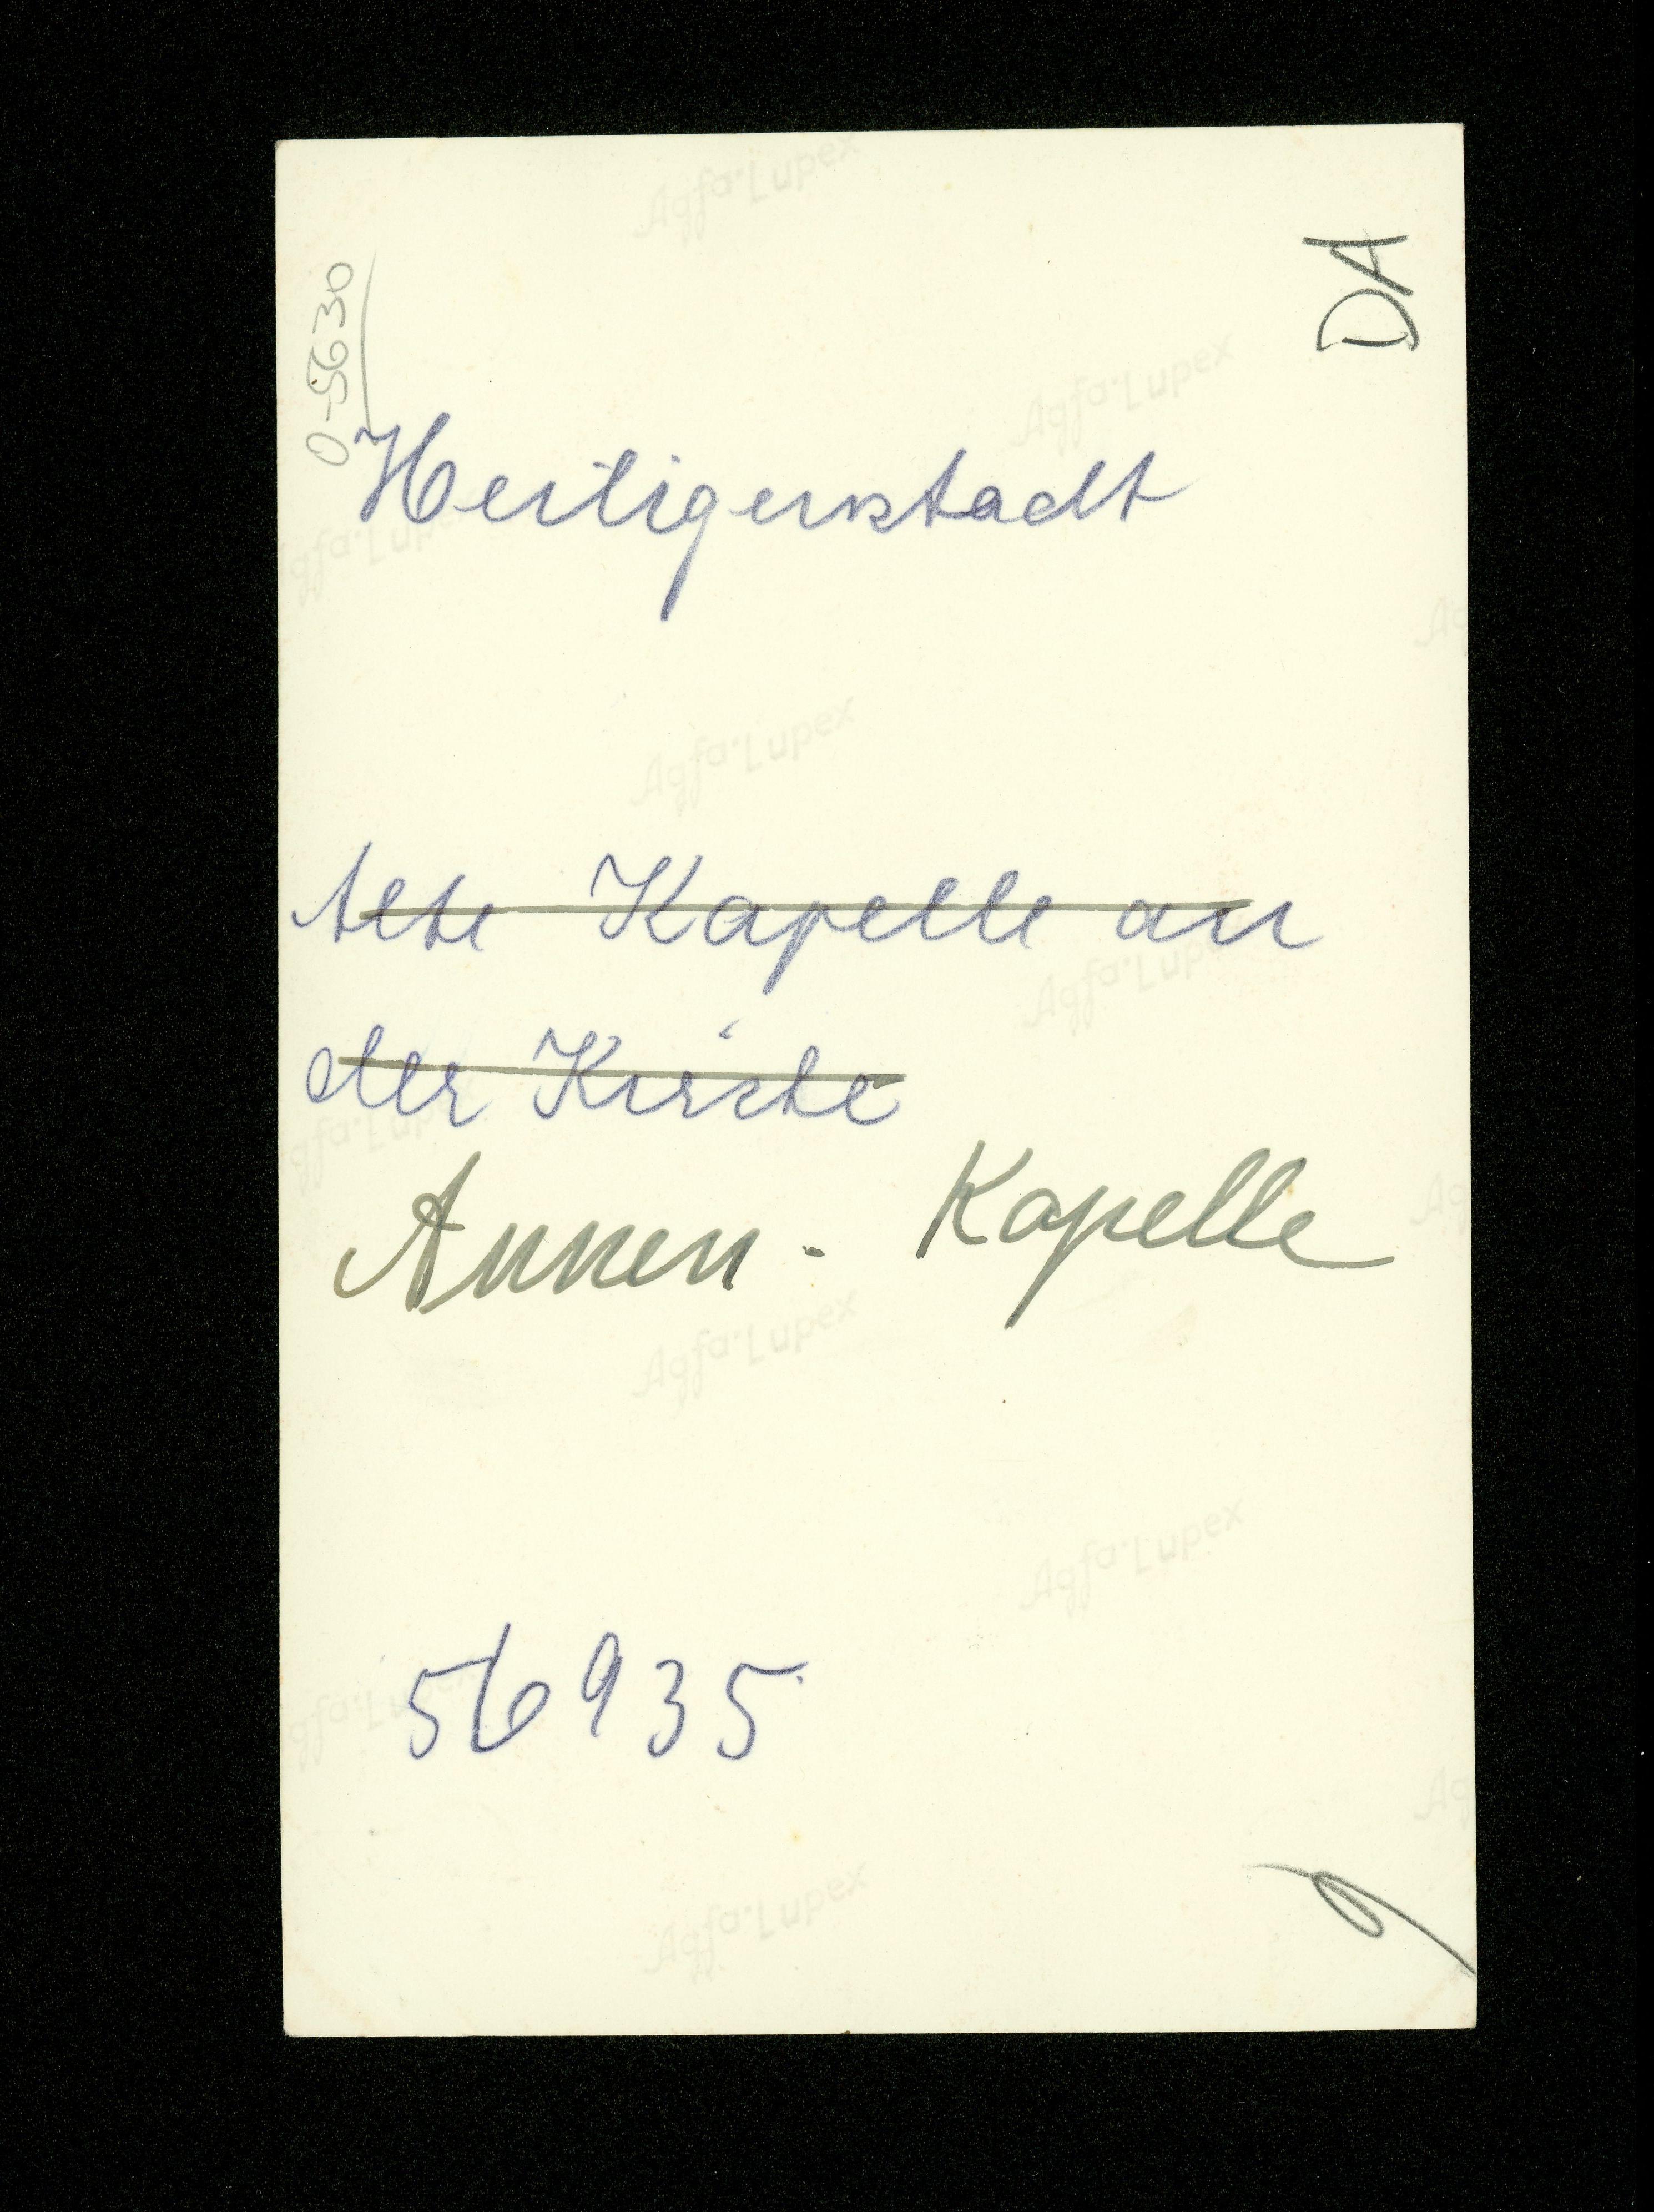 0-5630
DA
Heiligenstadt
Alte Kapelle an
der Kirche
Annen-Kapelle
56935
Agfa-Lupex
Agfa-Lupex
Agfa-Lupex
Agfa-Lupex
Agfa-Lupex
Agfa-Lupex
Agfa-Lupex